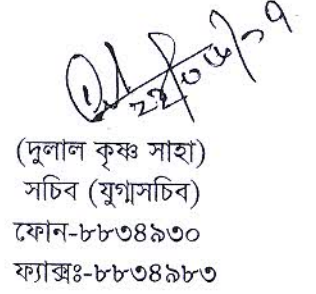 (দুলাল কৃষ্ণ সাহা)
সচিব (যুগ্মসচিব)
ফোন-৮৮৩৪৯৩০
ফ্যাক্সঃ-৮৮৩৪৯৮৩